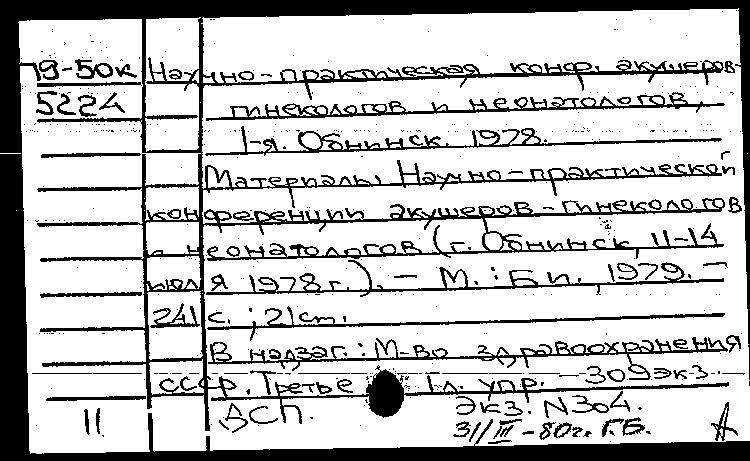 79-50к Научно-практическая конф. акушеров-
5224 гинекологов и неонатологов,
1-я. Обнинск. 1978.
Материалы Научно-практической
конференции акушеров-гинекологов
и неонатологов (г. Обнинск, 11-14
июля 1978 г.). - М.: Б.и., 1979. -
241 с.; 21 cm.
В надзаг.: М-во здравоохранения
СССР. Третье Гл. упр. - 309 экз.
11 ДСП. Экз. N304.
31/III-80г. Г.Б.